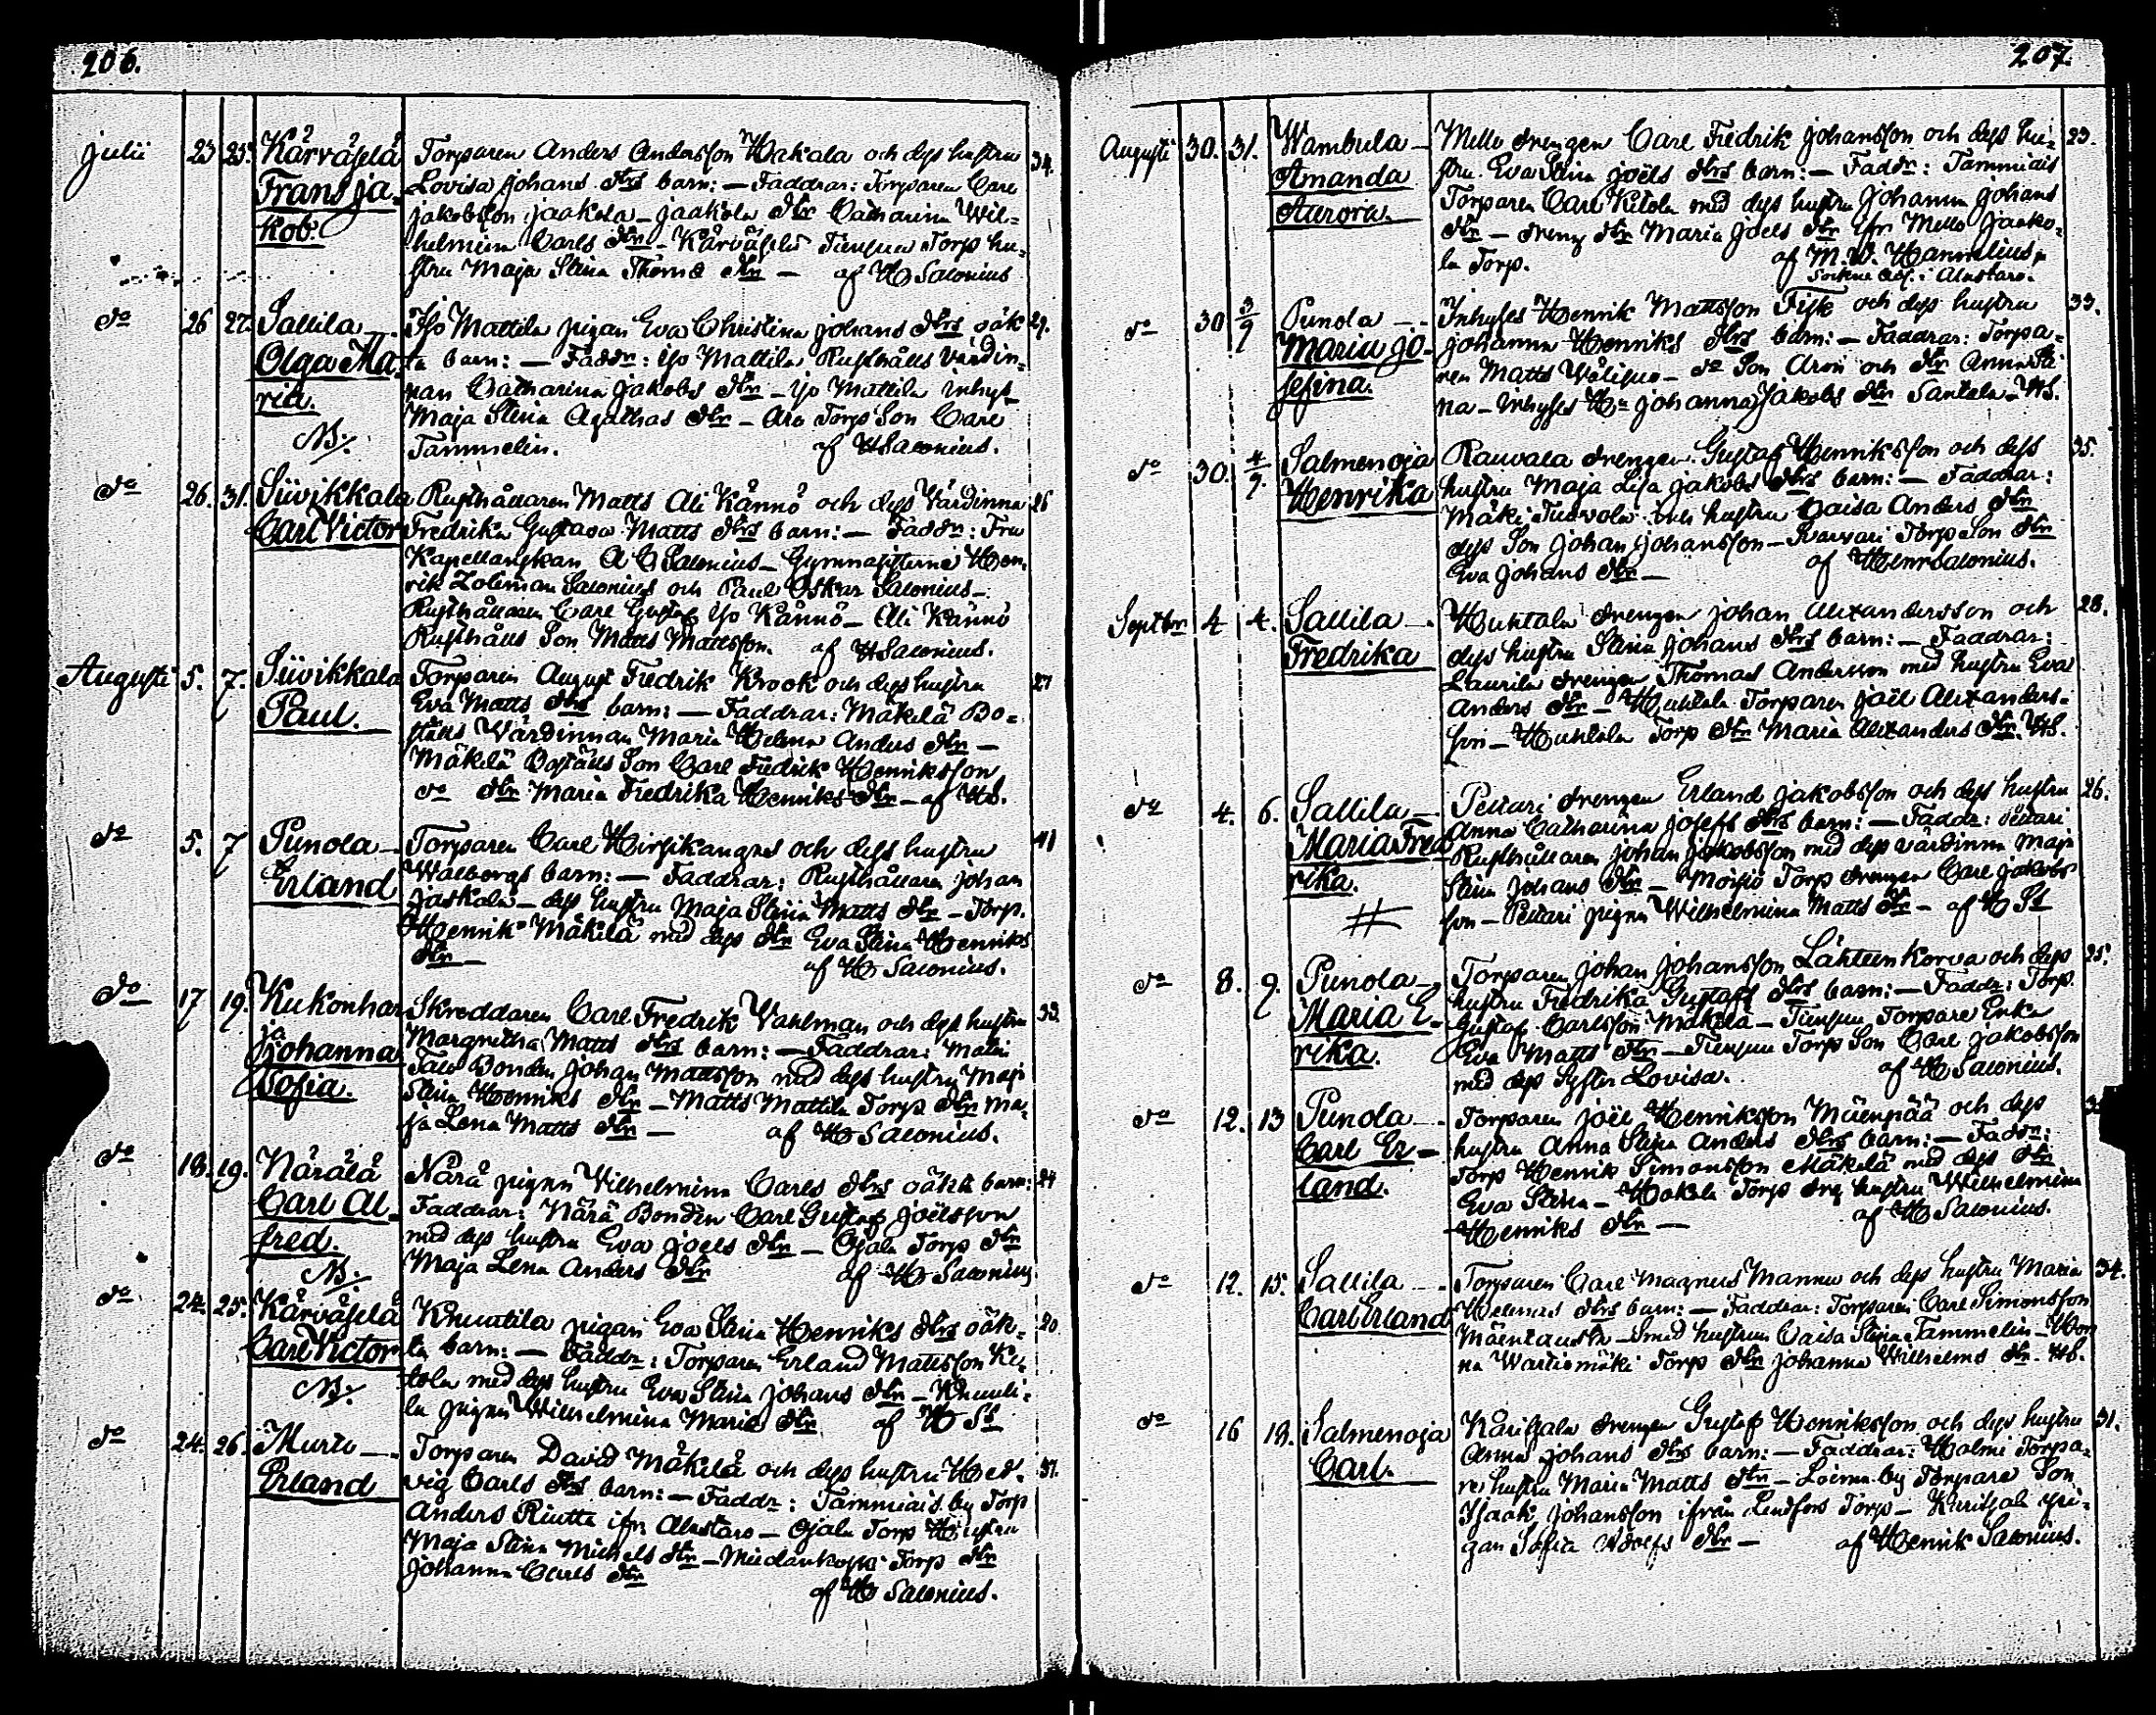 206.
Julii 23 25. Kärväselä Torparen Anders Andersson Hakala och dess hustru 34.
Frans Ja- Lovisa Johans dtrs barn: — Faddrar: Torparen Carl
kob. Jakobsson Jaakola — Jaakola dtr Catharina Wil-
helmina Carls dtr — Kärväselä Torp hu-
stru Maja Stina Thomæ dtr — af H Salonius
do 26 27. Sallila — Iso Mattila pigan Eva Christina Johans dtrs oäk 29.
Olga Ma- ta barn: — Faddr: Iso Mattila Rusthålls Värdin-
ria. nan Catharina Jakobs dtr — Iso Mattila inhys
NB. Maja Stina Agathas dtr — Torp Son Carl
Tammelin. af H Salonius.
do 26. 31. Suvikkala Rusthållaren Matts Ali Kännö och dess Värdinna 26
Carl Victor Fredrika Gustava Matts dtrs barn: — Faddr: Fru
Kapellanskan A C Salonius — Gymnasisterne Hen-
rik Zoliman Salonius och Paul Oskar Salonius —
Rusthållaren Carl Gustaf Iso Kännö — Ali Kännö
Rusthålls Son Matts Mattsson. af H Salonius.
Augusti 5. 7. Suvikkala Torparen August Fredrik Krook och dess hustru 27
Paul. Eva Matts dtrs barn: — Faddrar: Mäkelä Bo-
ställs Wärdinnan Maria Helena Anders dtr —
Mäkelä Boställs Son Carl Fredrik Henriksson
do dtr Maria Fredrika Henriks dtr — af HS.
do 5. 7 Punola — Torparen Carl Hirsikangas och dess hustru 41
Erland Walborgs barn: — Faddrar: Rusthållaren Johan
Jaskala — dess hustru Maja Stina Matts dtr — Torp.
Henrik Mäkilä med dess dtr Eva Stina Henriks
dtr — af H Salonius.
do 17 19. Kukonhar Skreddaren Carl Fredrik Vahlman och dess hustru 33.
ja
Johanna Margretha Matts dtrs barn: — Faddrar:
Sofia. Bonden Johan Mattsson med dess hustru Maja
Stina Henriks dtr — Matts Mattila Torp dtr Ma-
ja Lena Matts dtr — af H Salonius.
do 18. 19. Närälä Närä pigan Wilhelmina Carls dtrs oäkta barn: 24
Carl Al- Faddrar: Närä Bonden Carl Gustaf Joelsson
fred. med dess hustru Eva Joels dtr — Ojala Torp dtr
NB. Maja Lena Anders dtr af H Salonius
do 24. 25. Kärväselä Knuutila pigan Eva Stina Henriks dtrs oäk- 20
Carl Victor ta barn: — Faddr: Torparen Erland Mattsson Ki-
NB. tola med dess hustru Eva Stina Johans dtr — Knuuti-
la pigan Wilhelmina Marias dtr af H Ss
do 24. 26. Murto — Torparen David Mäkilä och dess hustru Hed- 37.
Erland vig Carls dtrs barn: — Faddr: Tammiais by Torp
Anders Riutta ifrn Alastaro — Ojala Torp Hustru
Maja Stina Michels dtr — Torp dtr
Johanna Carls dtr
af H Salonius.
207.
Augusti 30. 31. Wambula — Mello drengen Carl Fredrik Johansson och dess hu- 23.
Amanda stru Eva Stina Joëls dtrs barn: — Faddr: Tammiais
Aurora. Torparen Carl Kitola med dess hustru Johanna Johans
dtr — dreng dtr Maria Joels dtr ifrn Mello Jaako-
la Torp. af M. W. Hammelius,
Sockne Adj. i Alastaro.
do 30 3/9 Punola — Inhyses Henrik Mattsson Fisk och dess hustru 33.
Maria Jo- Johanna Henriks dtrs barn: — Faddrar: Torpa-
sefina. ren Matts — do Son Aron och dtr Anna Sti-
na — Inhyses Hu Johanna Jakobs dtr Santala — HS.
do 30. 4/9. Salmenoja Rauvala drengen Gustaf Henriksson och dess 35.
Henrika hustru Maja Lisa Jakobs dtrs barn: — Faddrar:
Mäki Tuovola och hustru Caisa Anders dtr
dess Son Johan Johansson — Torp Son dtr
Eva Johans dtr — af Henr Salonius.
Septbr 4 4. Sallila — Huhtala drengen Johan Alexandersson och 28.
Fredrika dess hustru Stina Johans dtrs barn: — Faddrar:
Laurila drengen Thomas Andersson med hustru Eva
Anders dtr — Huhtala Torparen Joël Alexanders-
son — Huhtala Torp dtr Maria Alexanders dtr. HS.
do 4. 6. Sallila — Peltari drengen Erland Jakobsson och dess hustru 26.
Maria Fred Anna Catharina Josefs dtrs barn: — Faddr: Peltari
rika. Rusthållaren Johan Jakobsson med dess värdinna Maja
Stina Johans dtr — Moisio Torp drengen Carl Jakobs-
son — Peltari pigan Wilhelmina Matts dtr — af H Ss
do 8. 9. Punola — Torparen Johan Johansson Lähteenkorva och dess 25.
Maria E- hustru Fredrika Gustafs dtrs barn: — Faddr: Torp.
rika. Gustaf Carlsson Mäkilä — Torpare Enka
Eva Matts dtr — Torp Son Carl Jakobsson
med dess Syster Lovisa. af H Salonius.
do 12. 13 Punola — Torparen Joël Henriksson Mäenpää och dess
Carl Er- hustru Anna Stina Anders dtrs barn: — Faddr:
land. Torp Henrik Simonsson Mäkelä med dess dtr
Eva Stina — Hakala Torp drg hustru Wilhelmina
Henriks dtr — af H Salonius.
do 12. 15. Sallila — Torparen Carl Magnus Mannu och dess hustru Maria 34.
Carl Erland Helenas dtrs barn: — Faddrar: Torparen Carl Simonsson
Mäentausta — Smed hustrun Caisa Stina Tammelin — Hon
na Wartiomäki Torp dtr Johanna Wilhelms dtr. HS.
do 16 18. Salmenoja Karitsala drengen Gustaf Henriksson och dess hustru 31.
Carl. Anna Johans dtrs barn: — Faddrar: Holmi Torpa-
re hustru Maria Matts dtr — Loima by Torpare Son
Isaak Johansson ifrån Lindfors Torp — Karitsala pi-
gan Sofia Adolfs dtr — af Henrik Salonius.